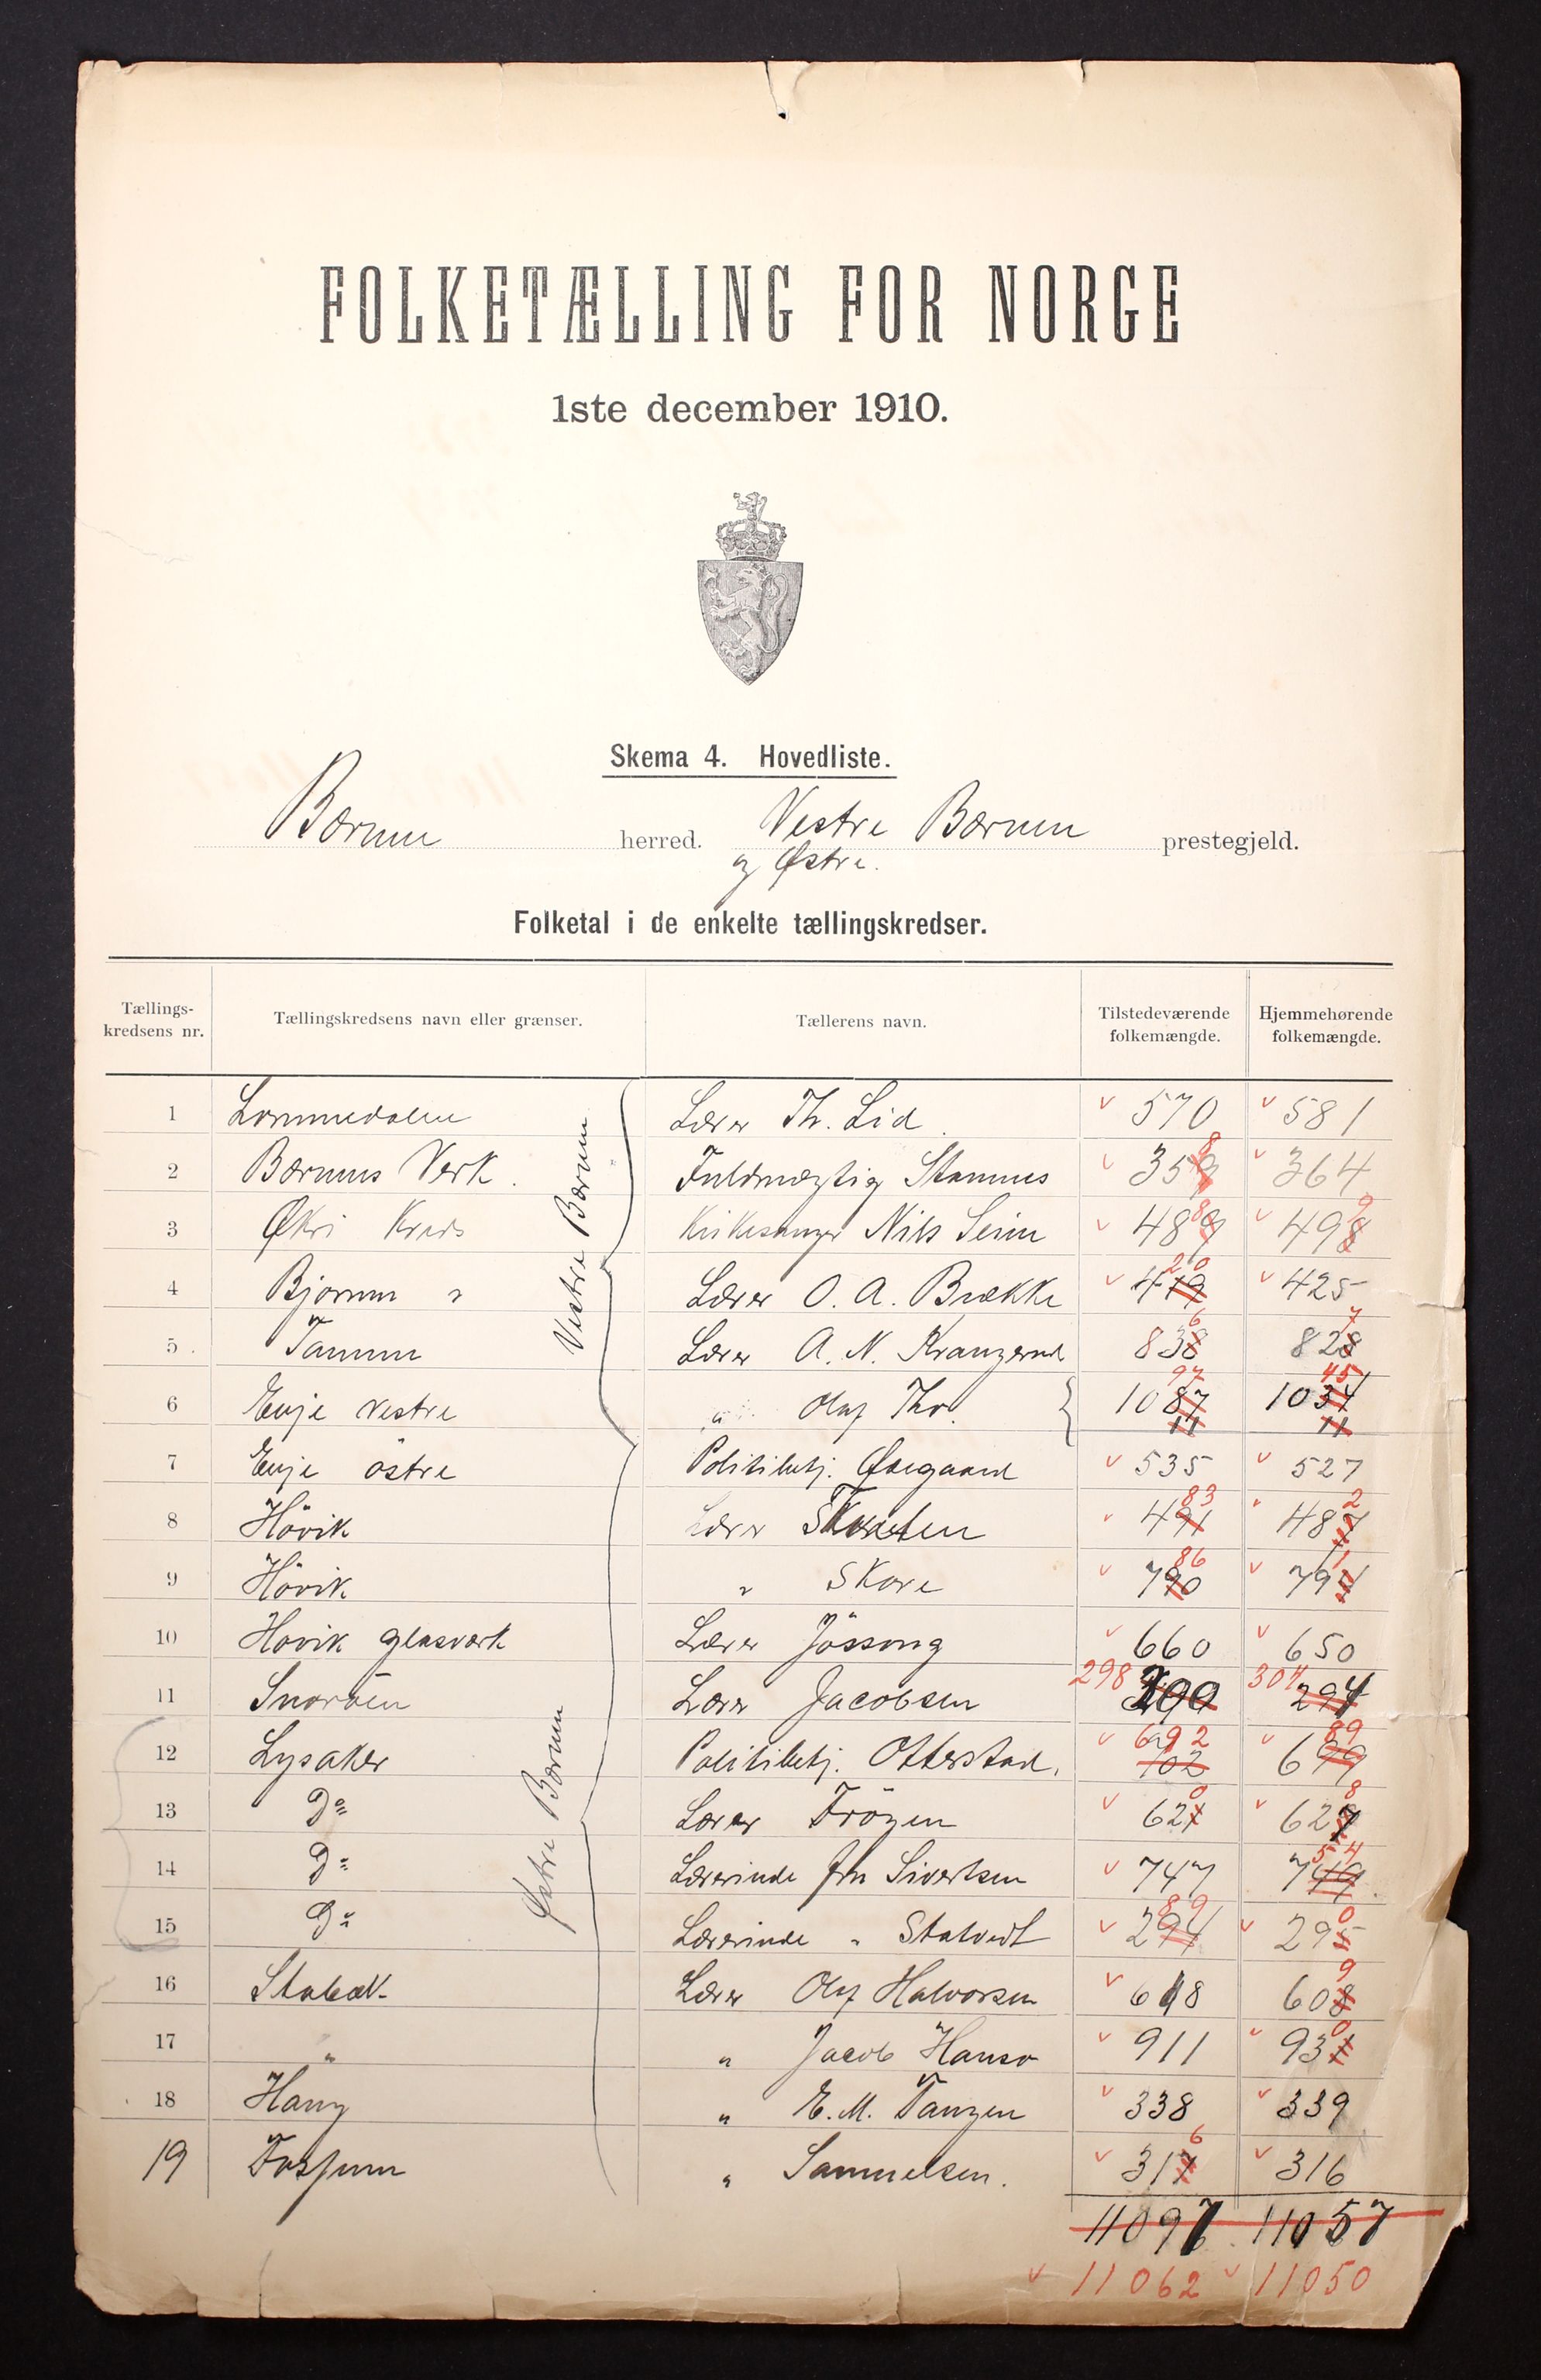 FOLKETÆLLING FOR NORGE
1ste december 1910.
Skema 4. Hovedliste.
Bærum herred. Vestre Bærum prestegjeld.
og Østre.
Folketal i de enkelte tællingskredser.
Tællings- Tilstedeværende Hjemmehørende
kredsens nr. Tællingskredsens navn eller grænser. Tællerens navn. folkemængde. folkemængde.
Vestre Bærum
1 Lommedalen Lærer Th. Lid. 570 581
2 Bærums Verk. Fuldmægtig Stamnes 358 364
3 Økri Kreds Kirkesanger Nils Seim 488 499
4 Bjorum " Lærer O. A. Brække 420 425
5 Tanum Lærer A. N. 836 827
6 Evje vestre " Olaf Tho. 1097 1045
7 Evje östre Politibetj. Øvegaard 535 527
Østre Bærum
8 Hövik Lærer 483 482
9 Hövik " Skare 786 791
10 Hövik glasværk Lærer Jössong 660 650
11 Snaröen Lærer Jacobsen 298 304
12 Lysaker Politibetj. Otterstad. 692 689
13 Do Lærer Fröyen 620 628
14 Do Lærerinde frk Sivertsen 747 754
15 Do Lærerinde " Stalvedt 289 290
16 Stabæk Lærer Olaf Halvorsen 618 609
17 " " Jacob Hanso 911 930
18 Haug " E. M. Tangen 338 339
19 Fossum " Samuelsen. 316 316
11097 11057
11062 11050